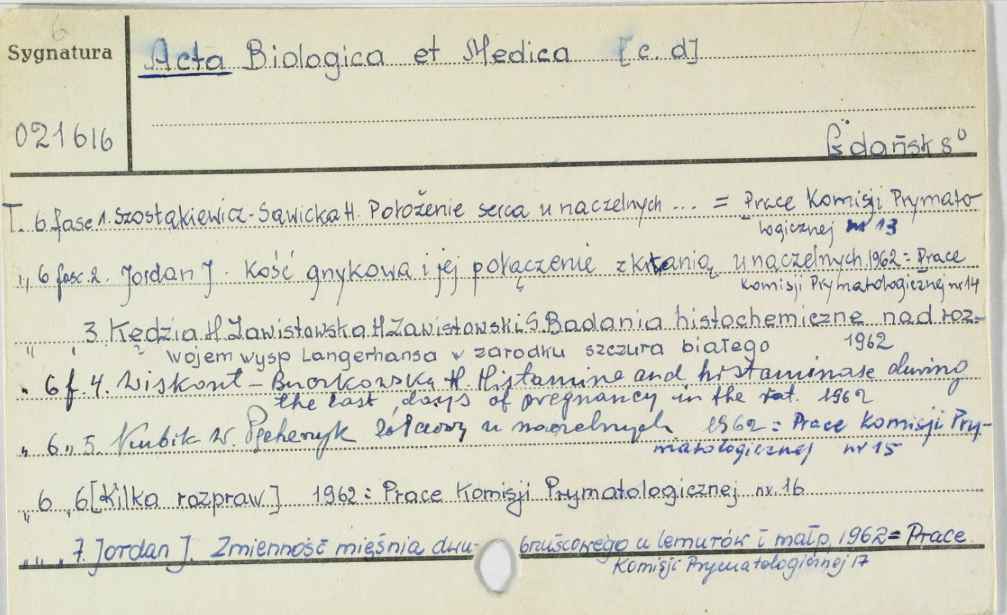 6
Sygnatura
Acta Biologica et Medica [c. d]
021616
Gdańsk 8°
T. 6 fasc 1. Szostąkiewicz-Sąwicka H. Położenie serca u naczelnych ... = Prace Komisji Prymato-
logicznej nr 13
„ 6 fasc. 2. Jordan J. Kość gnykowa i jej połączenie z krtanią u naczelnych. 1962 = Prace
Komisji Prymatologicznej nr 14
„ „ 3. Kędzia H. Zawistowska H. Zawistowski S. Badania histochemiczne nad roz-
wojem wysp Langerhansa w zarodku szczura białego 1962
„ 6 f. 4. Wiskont-Buczkowska H. Histamine and histaminase during
the last days of pregnancy in the rat. 1962
„ 6 „ 5. Kubik W. Pęcherzyk żółciowy u naczelnych 1962 = Prace Komisji Pry-
matologicznej nr 15
„ 6 „ 6 [Kilka rozpraw] 1962 = Prace Komisji Prymatologicznej nr. 16
„ „ „ 7. Jordan J. Zmienność mięśnia dwu- bruścowego u lemurów i małp. 1962 = Prace
Komisji Prymatologicznej 17